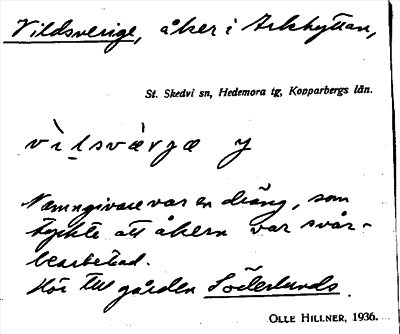 Vildsverige, åker i Arkhyttan,
St. Skedvi sn, Hedemora tg, Kopparbergs län.
vìlsvær̀gæ y
Namngivare var en dräng, som
tyckte att åkern var svår-
bearbetad.
Hör till gården Söderlunds.
OLLE HILLNER, 1936.